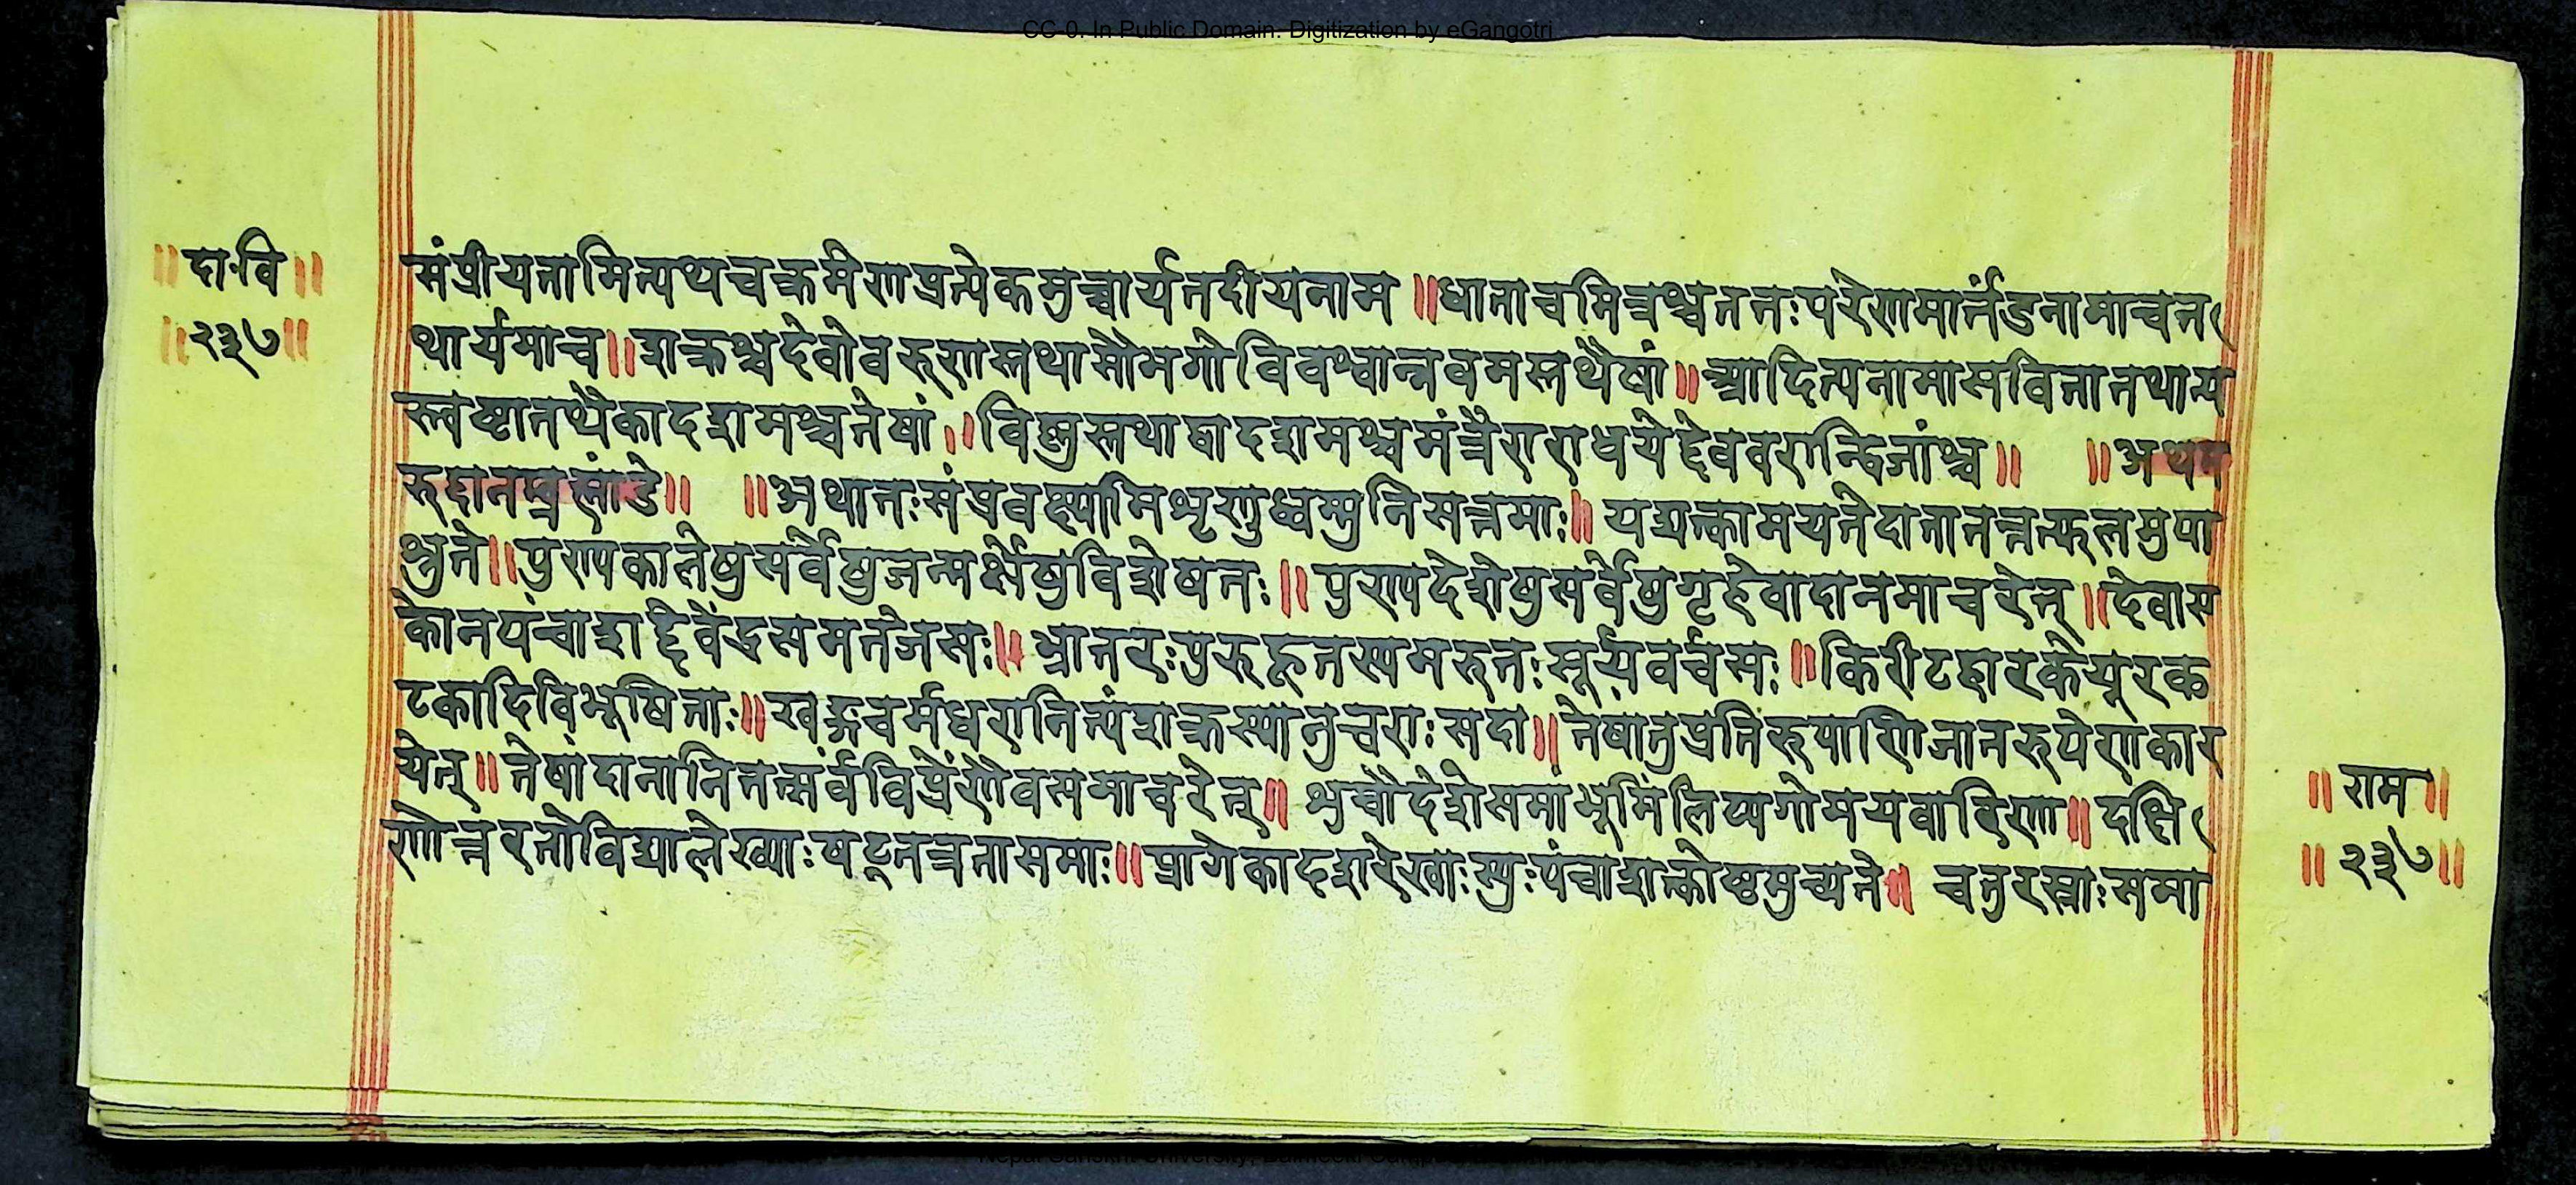 CC-0. In Public Domain. Digitization by eGangotri
॥दा॰वि॥
॥२३७॥
संप्रीयतामित्यथचक्रमेणप्रत्येकमुच्चार्यतदीयनाम ॥धाताचमित्रश्चततःपरेणमार्तंडनामाचत
थार्यमाच॥शक्रश्चदेवोवरुणस्तथासौभगोविवश्वान्नवमस्तथैषां॥आदित्यनामासवितातथान्य
स्त्वष्टातथैकादशमश्चतेषां॥विष्णुस्तथाद्वादशमश्चमंत्रैराराधयेद्देववरान्द्विजांश्च॥ ॥अथम
रुद्दानम्ब्रह्मांडे॥ ॥अथातःसंप्रवक्ष्यामिशृणुध्वम्मुनिसत्तमाः॥ यद्यत्कामयतेदातातत्तत्फलमुपा
श्नुते॥पुण्यकालेषुसर्वेषुजन्मर्क्षेषुविशेषतः॥पुण्यदेशेषुसर्वेषुगृहेवादानमाचरेत्॥देवास
कोनपंचाशद्देवेंद्रसमतेजसः॥भ्रातरःपुरुहूतस्यमरुतःसूर्यवर्चसः॥किरीटहारकेयूरक
टकादिविभूषिताः॥खड्गचर्मधरानित्यंशक्रस्यानुचराःसदा॥तेषांतुप्रतिरूपाणिजातरूपेणकार
येत्॥तेषांदानानितत्सर्वंविप्रेंणैवसमाचरेत्॥शुचौदेशेसमांभूमिंलिप्यगोमयवारिणा॥दक्षि
णोत्तरतोविद्यालेख्याःषट्तत्रताःसमाः॥प्रागेकादशरेखाःस्युःपंचाशत्कोष्टमुच्यते॥ चतुरस्राःसमा
॥राम॥
॥२३७॥